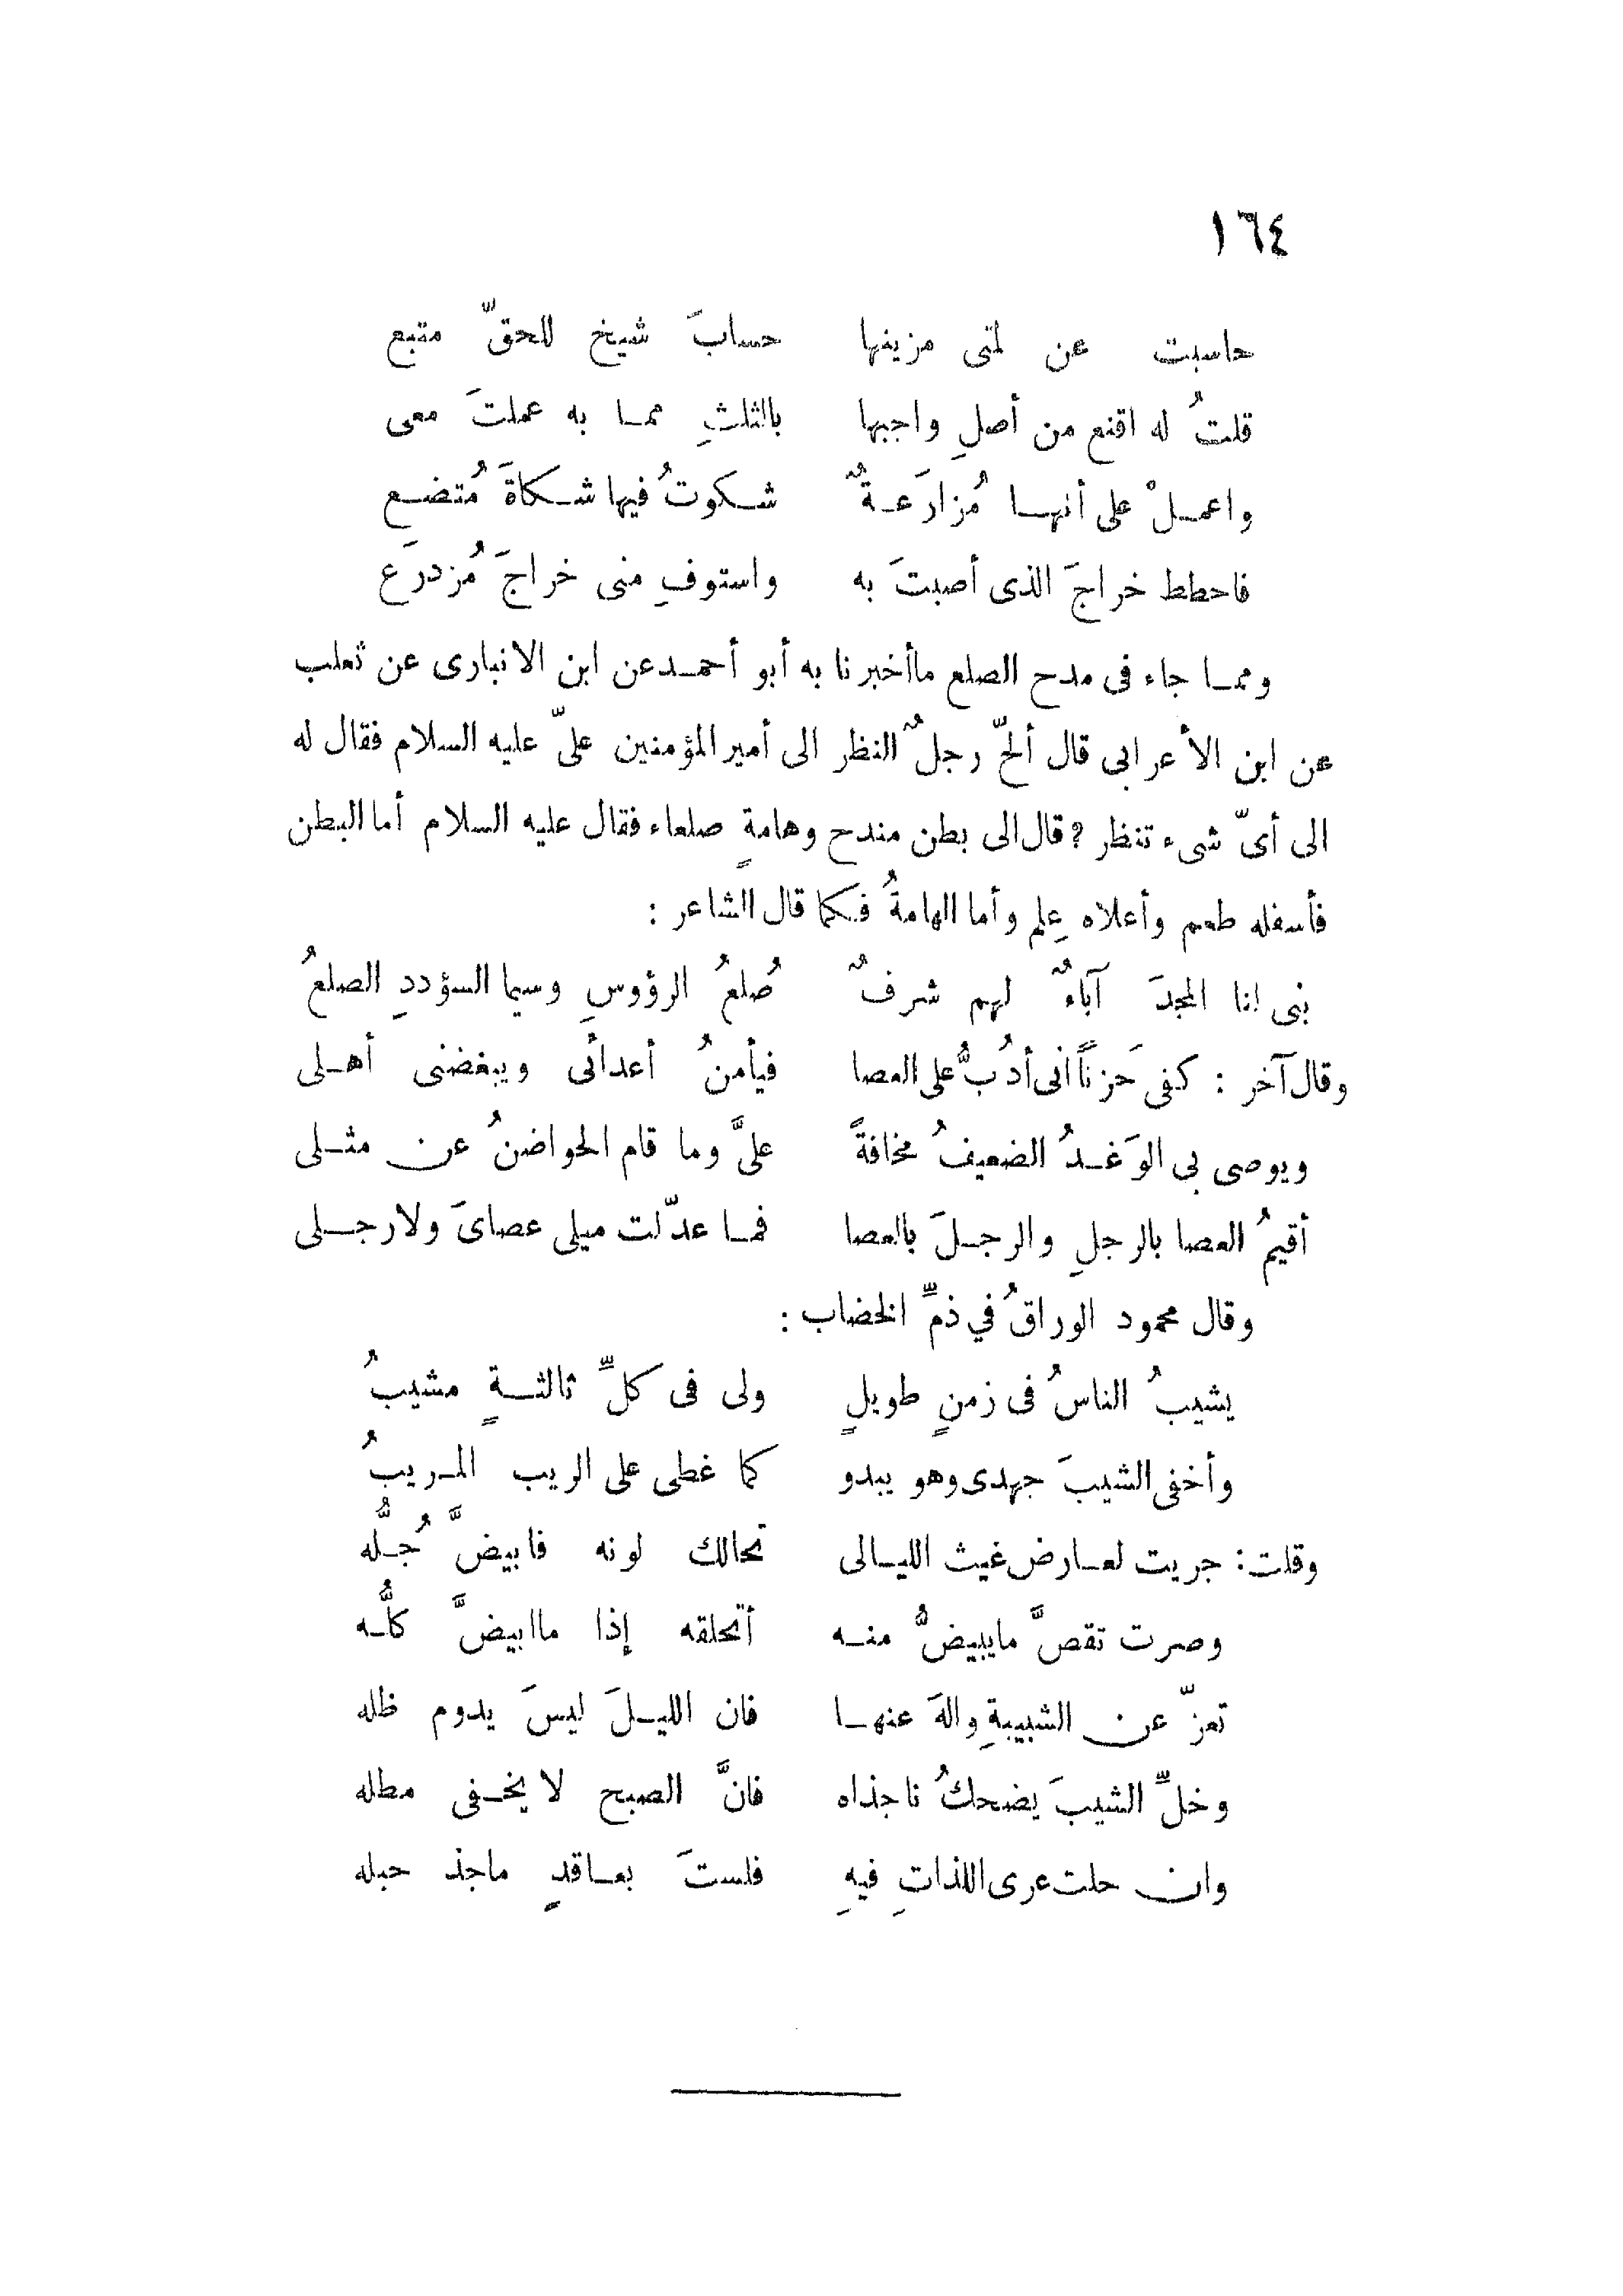 ١٦٤
حاسبت عن لمتى مزينها حسابَ شيخ للحقّ متبع
قلتُ له اقنع من أصلِ واجبها بالثلثِ ممـا به عملتَ معى
واعمـلْ على أنهـا مُزارَعـةٌ شـكوتُ فيها شـكاةَ مُتضـع
فاحطط خراجَ الذى أصبتَ به واستوفِ منى خراجَ مُزدرَع
وممـا جاء فى مدح الصلع ماأخبرنا به أبو أحمـد عن ابن الانبارى عن ثعلب
عن ابن الأعرابى قال ألحّ رجلٌ النظر الى أمير المؤمنين علىّ عليه السلام فقال له
الى أىّ شىء تنظر ؟ قال الى بطن مندح وهامةٍ صلعاء فقال عليه السلام أما البطن
فأسفله طعم وأعلاه عِلم وأما الهامةُ فـكما قال الشاعر :
بنى لنا المجدَ آباءٌ لهم شرفٌ صُلعُ الرؤوسِ وسيما السؤددِ الصلعُ
وقال آخر : كفى حَزناً انى أدُبُّ على العصا فيأمنُ أعدائى ويبغضنى أهـلى
ويوصى بى الوَغـدُ الضعيفُ مخافةً علىَّ وما قام الحواضنُ عن مثـلى
أقيمُ العصا بالرجلِ والرجـلَ بالعصا فمـا عدّلت ميلى عصاىَ ولا رجـلى
وقال محمود الوراقُ في ذمِّ الخضاب :
يشيبُ الناسُ فى زمنٍ طويلٍ ولى فى كلِّ ثالثـةٍ مشيبُ
وأخفى الشيبَ جهدى وهو يبدو كما غطى على الريب المـريبُ
وقلت : جريت لعـارض غيث الليـالى تحالك لونه فابيضَّ جُـلُّه
وصرت تقصَّ مايبيضُّ منـه أتحلقه إذا ماابيضَّ كلُّـه
تعزّ عن الشبيبةِ والهَ عنهـا فان الليـلَ ليسَ يدوم ظله
وخلِّ الشيبَ يضحكُ ناجذاه فانَّ الصبح لا يخـفى مطله
وان حلت عرى اللذاتِ فيهِ فلستَ بعـاقدٍ ماجذ حبله